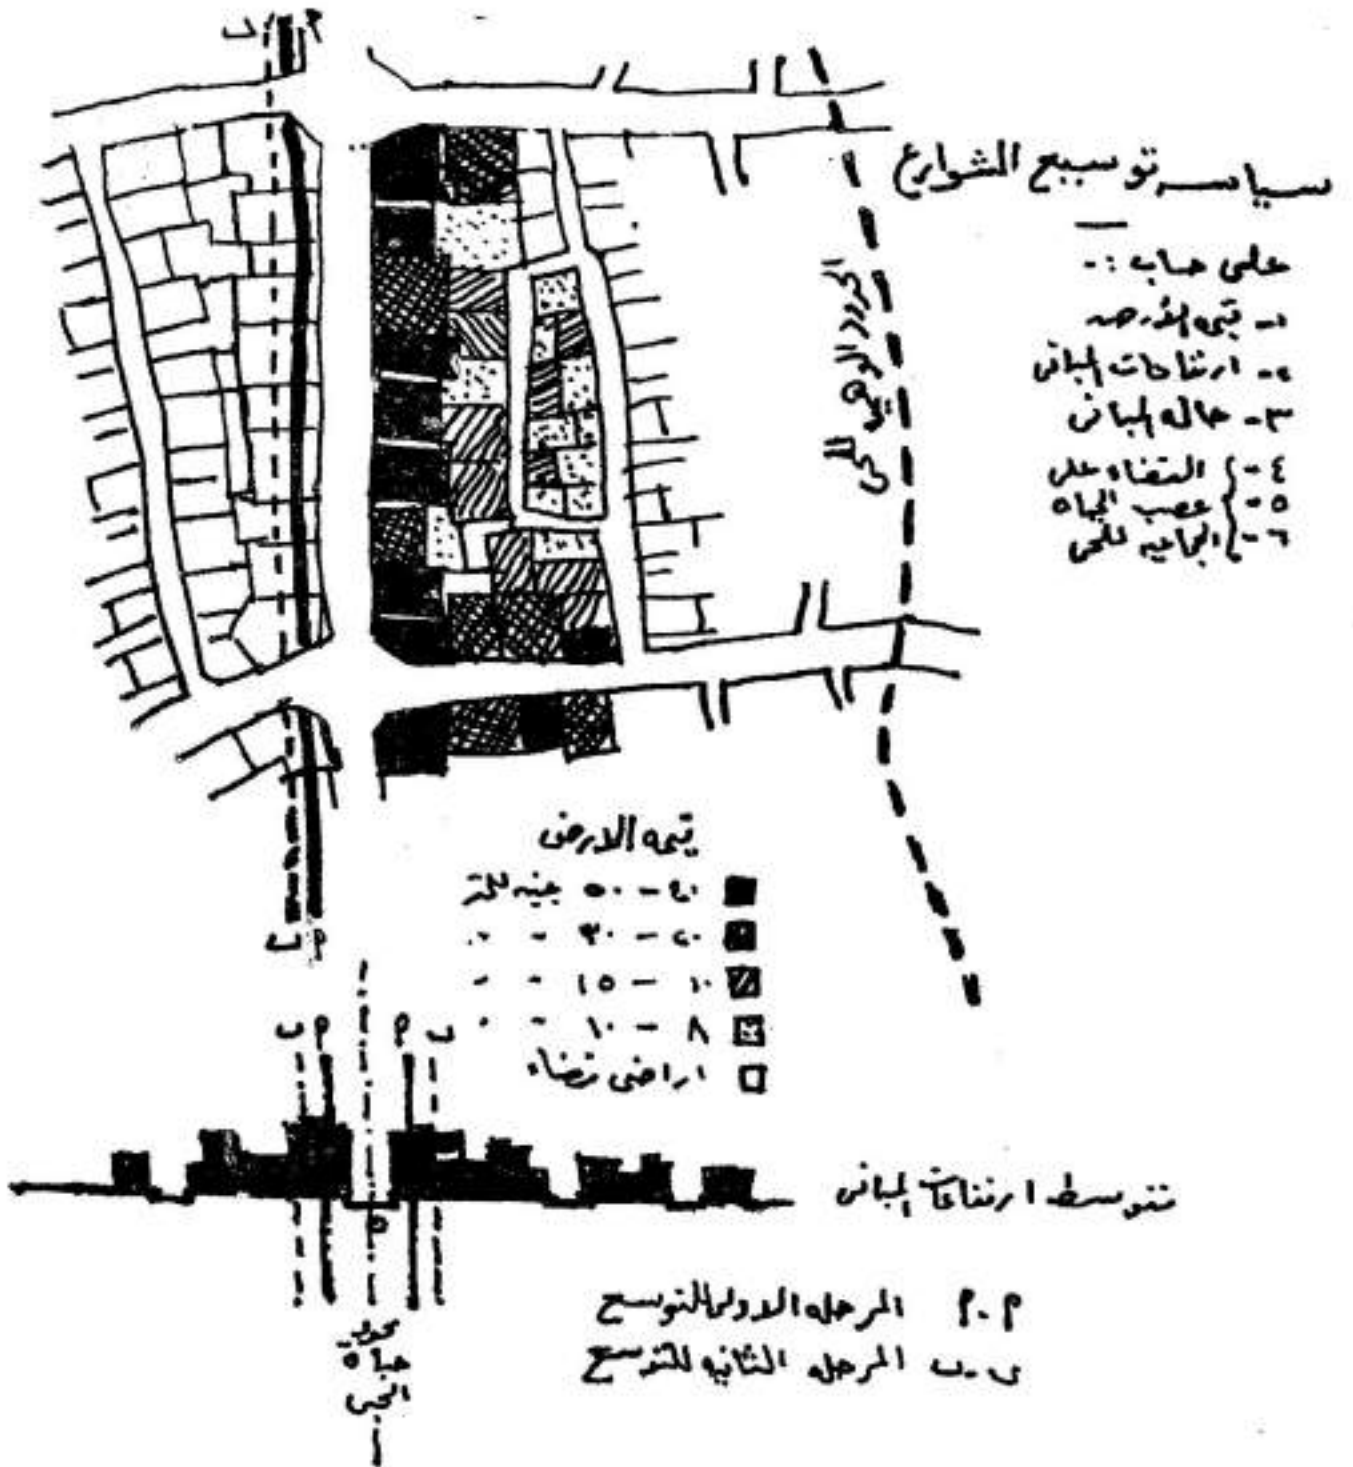 سياسه توسيع الشوارع
على حساب :-
١- قيمه الأرض
٢- ارتفاعات المبانى
٣- حاله المبانى
٤- القضاء على
٥- عصب الحياه
٦- الجماعيه للحى
الحدود الوهمى للحى
قيمه الارض
٤٠ - ٥٠ جنيه للمتر
٢٠ - ٣٠ " "
١٠ - ١٥ " "
٨ - ١٠ " "
اراضى فضاء
ب م م ب
متوسط ارتفاعات المبانى
محور
حياة
الحى
م.م المرحله الاولى للتوسع
ب.ب المرحله الثانيه للتوسع